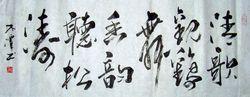 清歌
觀鶴
舞
韻
聽松
濤